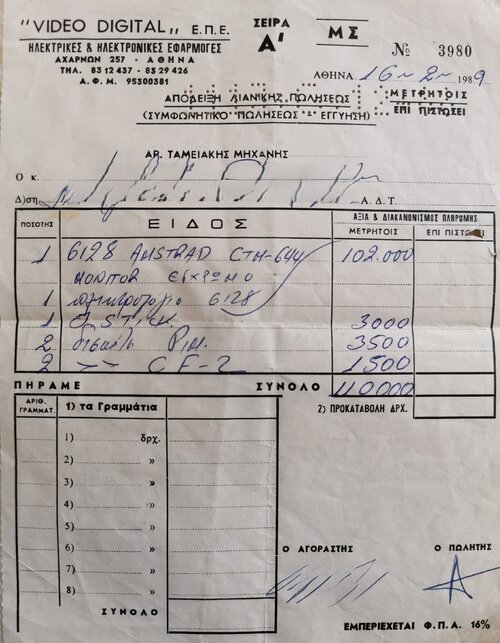 "VIDEO DIGITAL" Ε.Π.Ε.
ΗΛΕΚΤΡΙΚΕΣ & ΗΛΕΚΤΡΟΝΙΚΕΣ ΕΦΑΡΜΟΓΕΣ
ΑΧΑΡΝΩΝ 257 - ΑΘΗΝΑ
ΤΗΛ. 83 12 437 - 83 29 426
Α.Φ.Μ. 95300381
ΣΕΙΡΑ
Α'
ΜΣ
№ 3980
ΑΘΗΝΑ 16-2-1989
ΑΠΟΔΕΙΞΗ ΛΙΑΝΙΚΗΣ ΠΩΛΗΣΕΩΣ
(ΣΥΜΦΩΝΗΤΙΚΟ ΠΩΛΗΣΕΩΣ & ΕΓΓΥΗΣΗ)
ΜΕΤΡΗΤΟΙΣ
ΕΠΙ ΠΙΣΤΩΣΕΙ
ΑΡ. ΤΑΜΕΙΑΚΗΣ ΜΗΧΑΝΗΣ
Ο κ.
Δ)ση Α.Δ.Τ.
ΠΟΣΟΤΗΣ ΕΙΔΟΣ ΑΞΙΑ & ΔΙΑΚΑΝΟΝΙΣΜΟΣ ΠΛΗΡΩΜΗΣ
ΜΕΤΡΗΤΟΙΣ ΕΠΙ ΠΙΣΤΩΣΕΙ
1 6128 AMSTRAD CTM-644 102.000
ΜΟΝΙΤΟΡ ΕΓΧΡΩΜΟ
1 6128
1 STICK 3000
2 3500
2 CF-2 1500
ΠΗΡΑΜΕ ΣΥΝΟΛΟ 110000
ΑΡΙΘ. ΓΡΑΜΜΑΤ. 1) τα Γραμμάτια
2) ΠΡΟΚΑΤΑΒΟΛΗ ΔΡΧ.
1) δρχ.
2) »
3) »
4) »
5) »
6) »
7) »
8) »
ΣΥΝΟΛΟ
Ο ΑΓΟΡΑΣΤΗΣ Ο ΠΩΛΗΤΗΣ
ΕΜΠΕΡΙΕΧΕΤΑΙ Φ.Π.Α. 16%